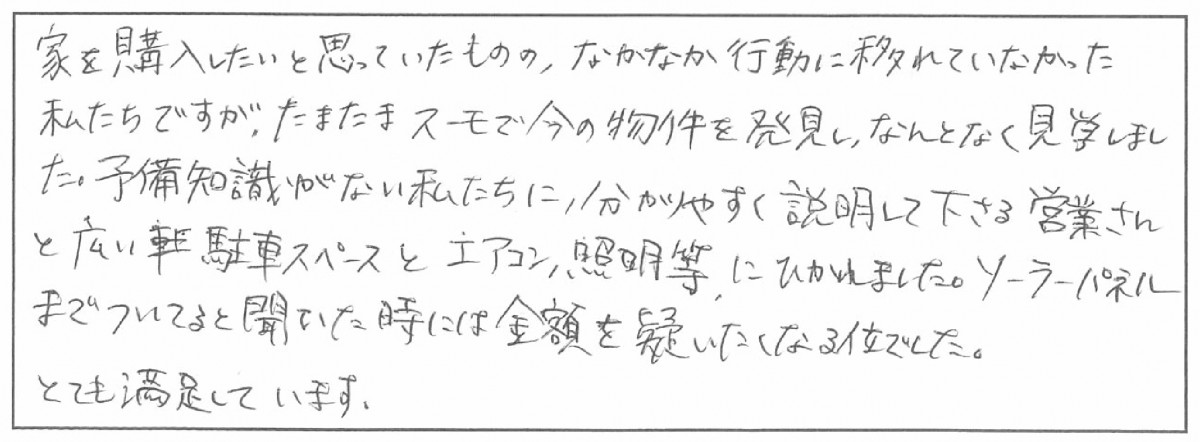 家を購入したいと思っていたものの、なかなか行動に移れていなかった
私たちですが、たまたまスーモで今の物件を発見し、なんとなく見学しまし
た。予備知識がない私たちに、分かりやすく説明して下さる営業さん
と広い駐車スペースとエアコン、照明等、にひかれました。ソーラーパネル
までついてると聞いた時には金額を疑いたくなる位でした。
とても満足しています。